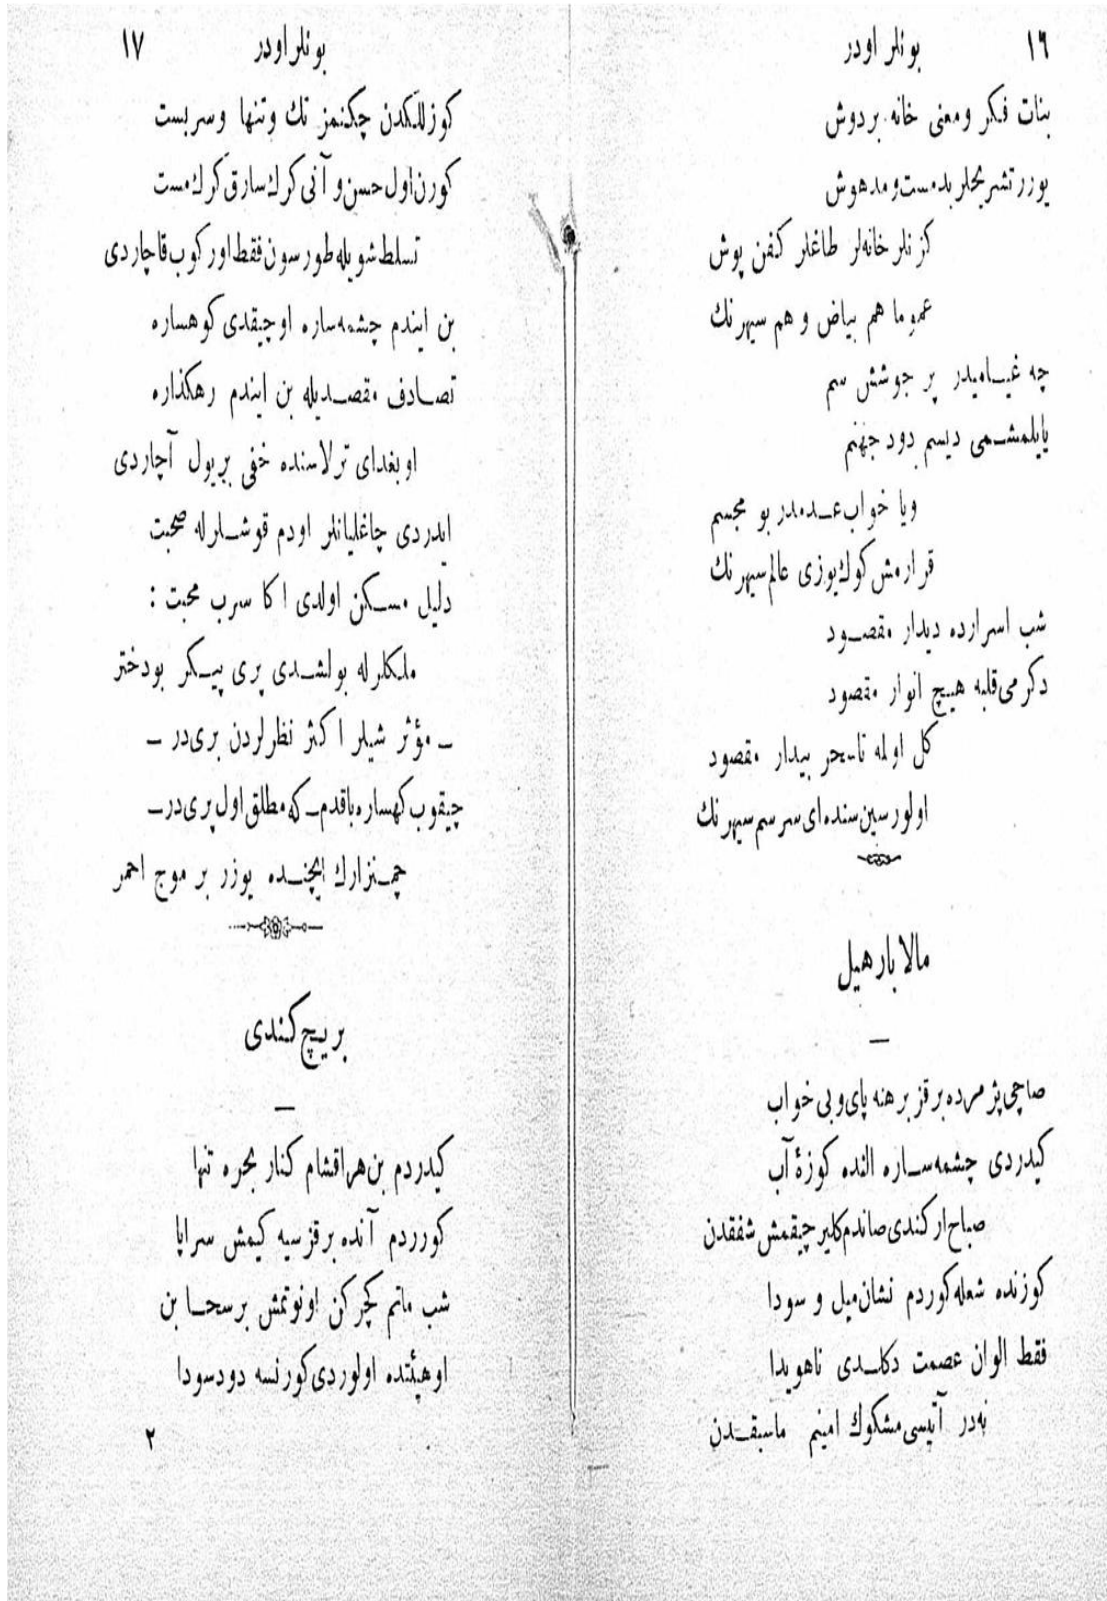 ١٦ بونلر اودر
بنات فكر ومعنی خانه بردوش
یوزر تشریحلر بدمست و مدهوش
كزنلر خانه‌لر طاغلر كفن پوش
عموما هم بیاض و هم سیهرنك
چه غیــامیدر پر جوشش سم
یایلمشــمی دیسم دود جهنم
ویا خواب عــدمدر بو مجسم
قرارمش كوك یوزی عالم سیهرنك
شب اسرارده دیدار مقصــود
دكرمی قلبه هیچ انوار مقصود
كل اولمه تاسحر بیدار مقصود
اولورسین سنده ای سرسم سیهرنك
مالابار هیل
صاچی پژمرده بر قز برهنه پای و بی خواب
كیدردی چشمه‌ســاره النده كوزۀ آب
صباح اركندی صاندم كلیر چیقمش شفقدن
كوزنده شعله كوردم نشان میل و سودا
فقط الوان عصمت دكلــدی ناهویدا
نه‌در آتیسی مشكوك امینم ماسبقــدن
بونلر اودر ١٧
كوزللكدن چكنمز تك وتنها وسربست
كورن اول حسن و آنی كرك سارق كرك مست
تسلط شویله طورسون فقط اوركوب قاچاردی
بن ایندم چشمه‌ساره او چیقدی كوهساره
تصــادف مقصــدیله بن ایندم رهكذاره
او بغدای ترلاسنده خفی بریول آچاردی
ایدردی چاغلیانلر اودم قوشــلرله صحبت
دلیل مســكن اولدی اكا سرب محبت :
ملكلرله بولشــدی پری پیــكر بودختر
ــ مؤثر شیلر اكثر نظرلردن بری‌در ــ
چیقوب كهساره باقدم ــ كه مطلق اول پری‌در ــ
چمــنزارك ایچنــده یوزر بر موج احمر
بریچ كندی
كیدردم بن هر اقشام كنار بحره تنها
كورردم آنده بر قز سیه كیمش سراپا
شب ماتم كچركن اونوتمش بر سحــابن
او هیئتده اولوردی كورنسه دود سودا
٢